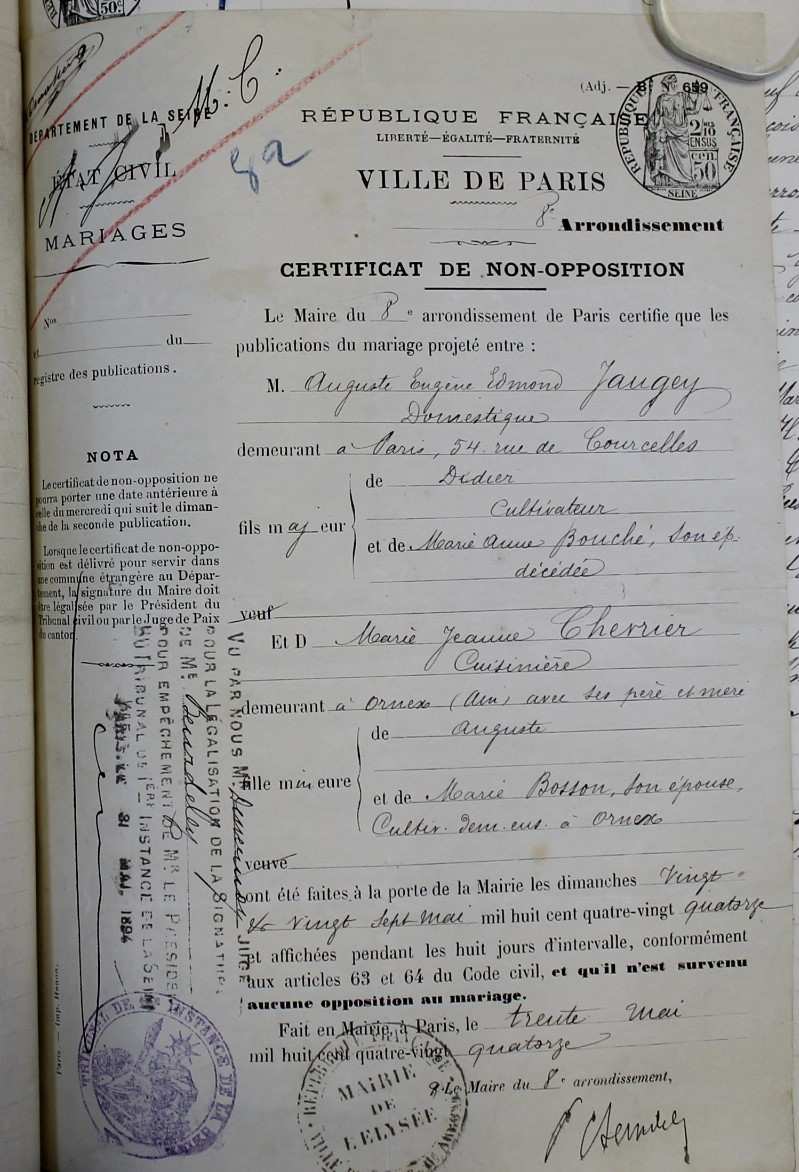 (Adj. — B. No 659
DÉPARTEMENT DE LA SEINE
M. C.
82
ÉTAT CIVIL
MARIAGES
RÉPUBLIQUE FRANÇAISE
LIBERTÉ—ÉGALITÉ—FRATERNITÉ
VILLE DE PARIS
8e Arrondissement
RÉPUBLIQUE FRANÇAISE
2/10 EN SUS
50 cen
SEINE
CERTIFICAT DE NON-OPPOSITION
Nos
et du
registre des publications.
Le Maire du 8e arrondissement de Paris certifie que les
publications du mariage projeté entre :
M. Auguste Eugène Edmond Jaugey
Domestique
demeurant à Paris, 54 rue de Courcelles
de Didier
Cultivateur
fils majeur
et de Marie Anne Bouché, son ép.
décédée
veuf
Et D Marie Jeanne Chevrier
Cuisinière
demeurant à Ornex (Ain) avec ses père et mère
de Auguste
fille mineure
et de Marie Bosson, son épouse,
Cultiv. dem. ens. à Ornex
veuve
ont été faites à la porte de la Mairie les dimanches Vingt
& vingt sept Mai mil huit cent quatre-vingt quatorze
et affichées pendant les huit jours d'intervalle, conformément
aux articles 63 et 64 du Code civil, et qu'il n'est survenu
aucune opposition au mariage.
Fait en Mairie, à Paris, le trente Mai
mil huit cent quatre-vingt quatorze
Le Maire du 8e arrondissement,
NOTA
Le certificat de non-opposition ne
pourra porter une date antérieure à
celle du mercredi qui suit le diman-
che de la seconde publication.
Lorsque le certificat de non-oppo-
sition est délivré pour servir dans
une commune étrangère au Dépar-
tement, la signature du Maire doit
être légalisée par le Président du
Tribunal civil ou par le Juge de Paix
du canton.
VU PAR NOUS Mr JUGE
POUR LA LÉGALISATION DE LA SIGNATURE
DE Mr
POUR EMPÊCHEMENT DE Mr LE PRÉSIDENT
DU TRIBUNAL DE 1ÈRE INSTANCE DE LA SEINE
PARIS, LE 31 MAI. 1894
Paris. — Imp.
TRIBUNAL DE 1re INSTANCE DE LA SEINE
MAIRIE
DE
L'ELYSÉE